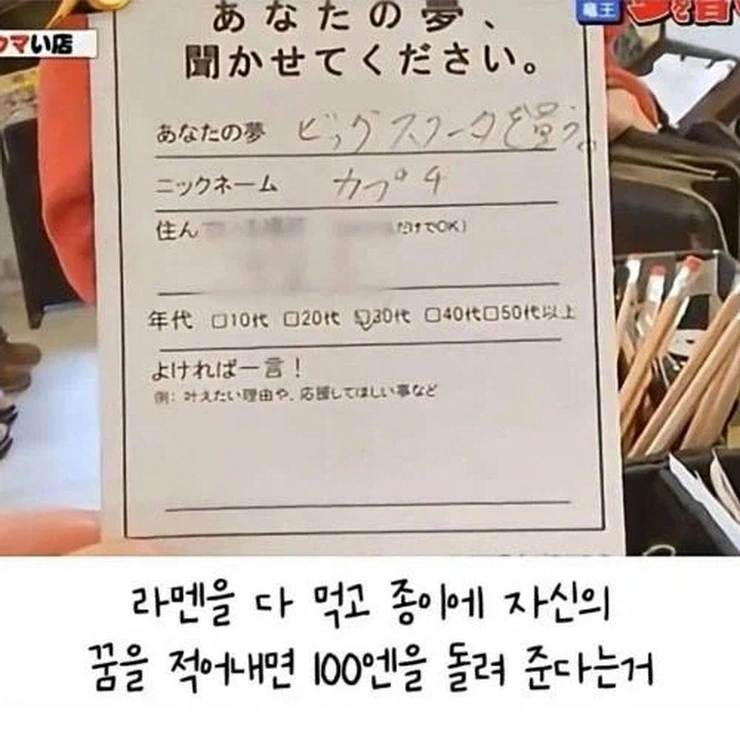 竜王
ウマい店
あなたの夢、
聞かせてください。
あなたの夢 ビッグスクータを買う。
ニックネーム カプチ
住ん だけでOK)
年代 □10代 □20代 ☑30代 □40代□50代以上
よければ一言!
例: 叶えたい理由や、応援してほしい事など
라멘을 다 먹고 종이에 자신의
꿈을 적어내면 100엔을 돌려 준다는거